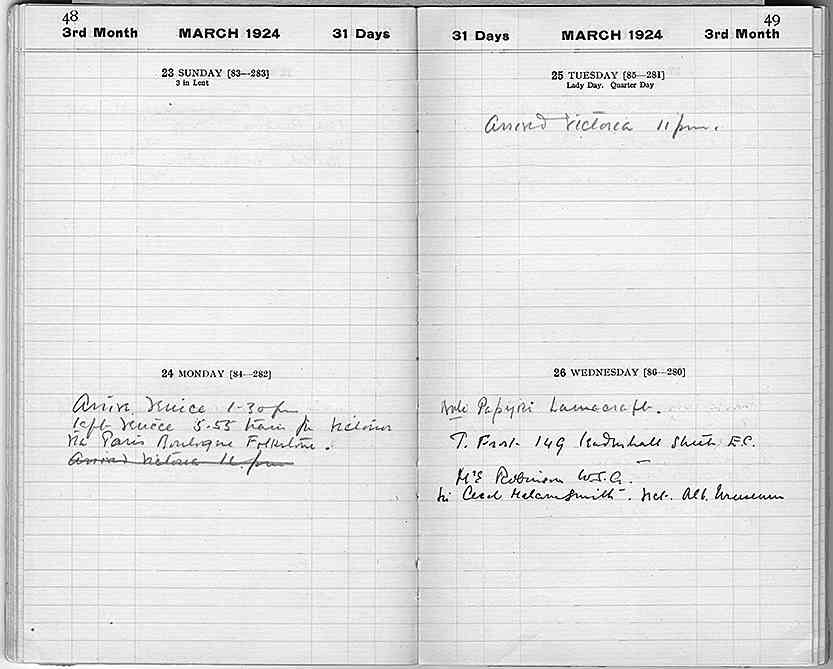 48
3rd Month MARCH 1924 31 Days
23 SUNDAY [83—283]
3 in Lent
24 MONDAY [84—282]
Arrive Venice 1-30 pm
left Venice 5-55 train for Victoria
via Paris Boulogne Folkstone.
Arrived Victoria 11 pm
49
31 Days MARCH 1924 3rd Month
25 TUESDAY [85—281]
Lady Day. Quarter Day
Arrived Victoria 11 pm.
26 WEDNESDAY [86—280]
Note Papyri Lamacraft.
T. Frost 149 Leadenhall Street E.C.
Robinson
Sir Cecil Harcourt Smith. Vict. Alb. Museum